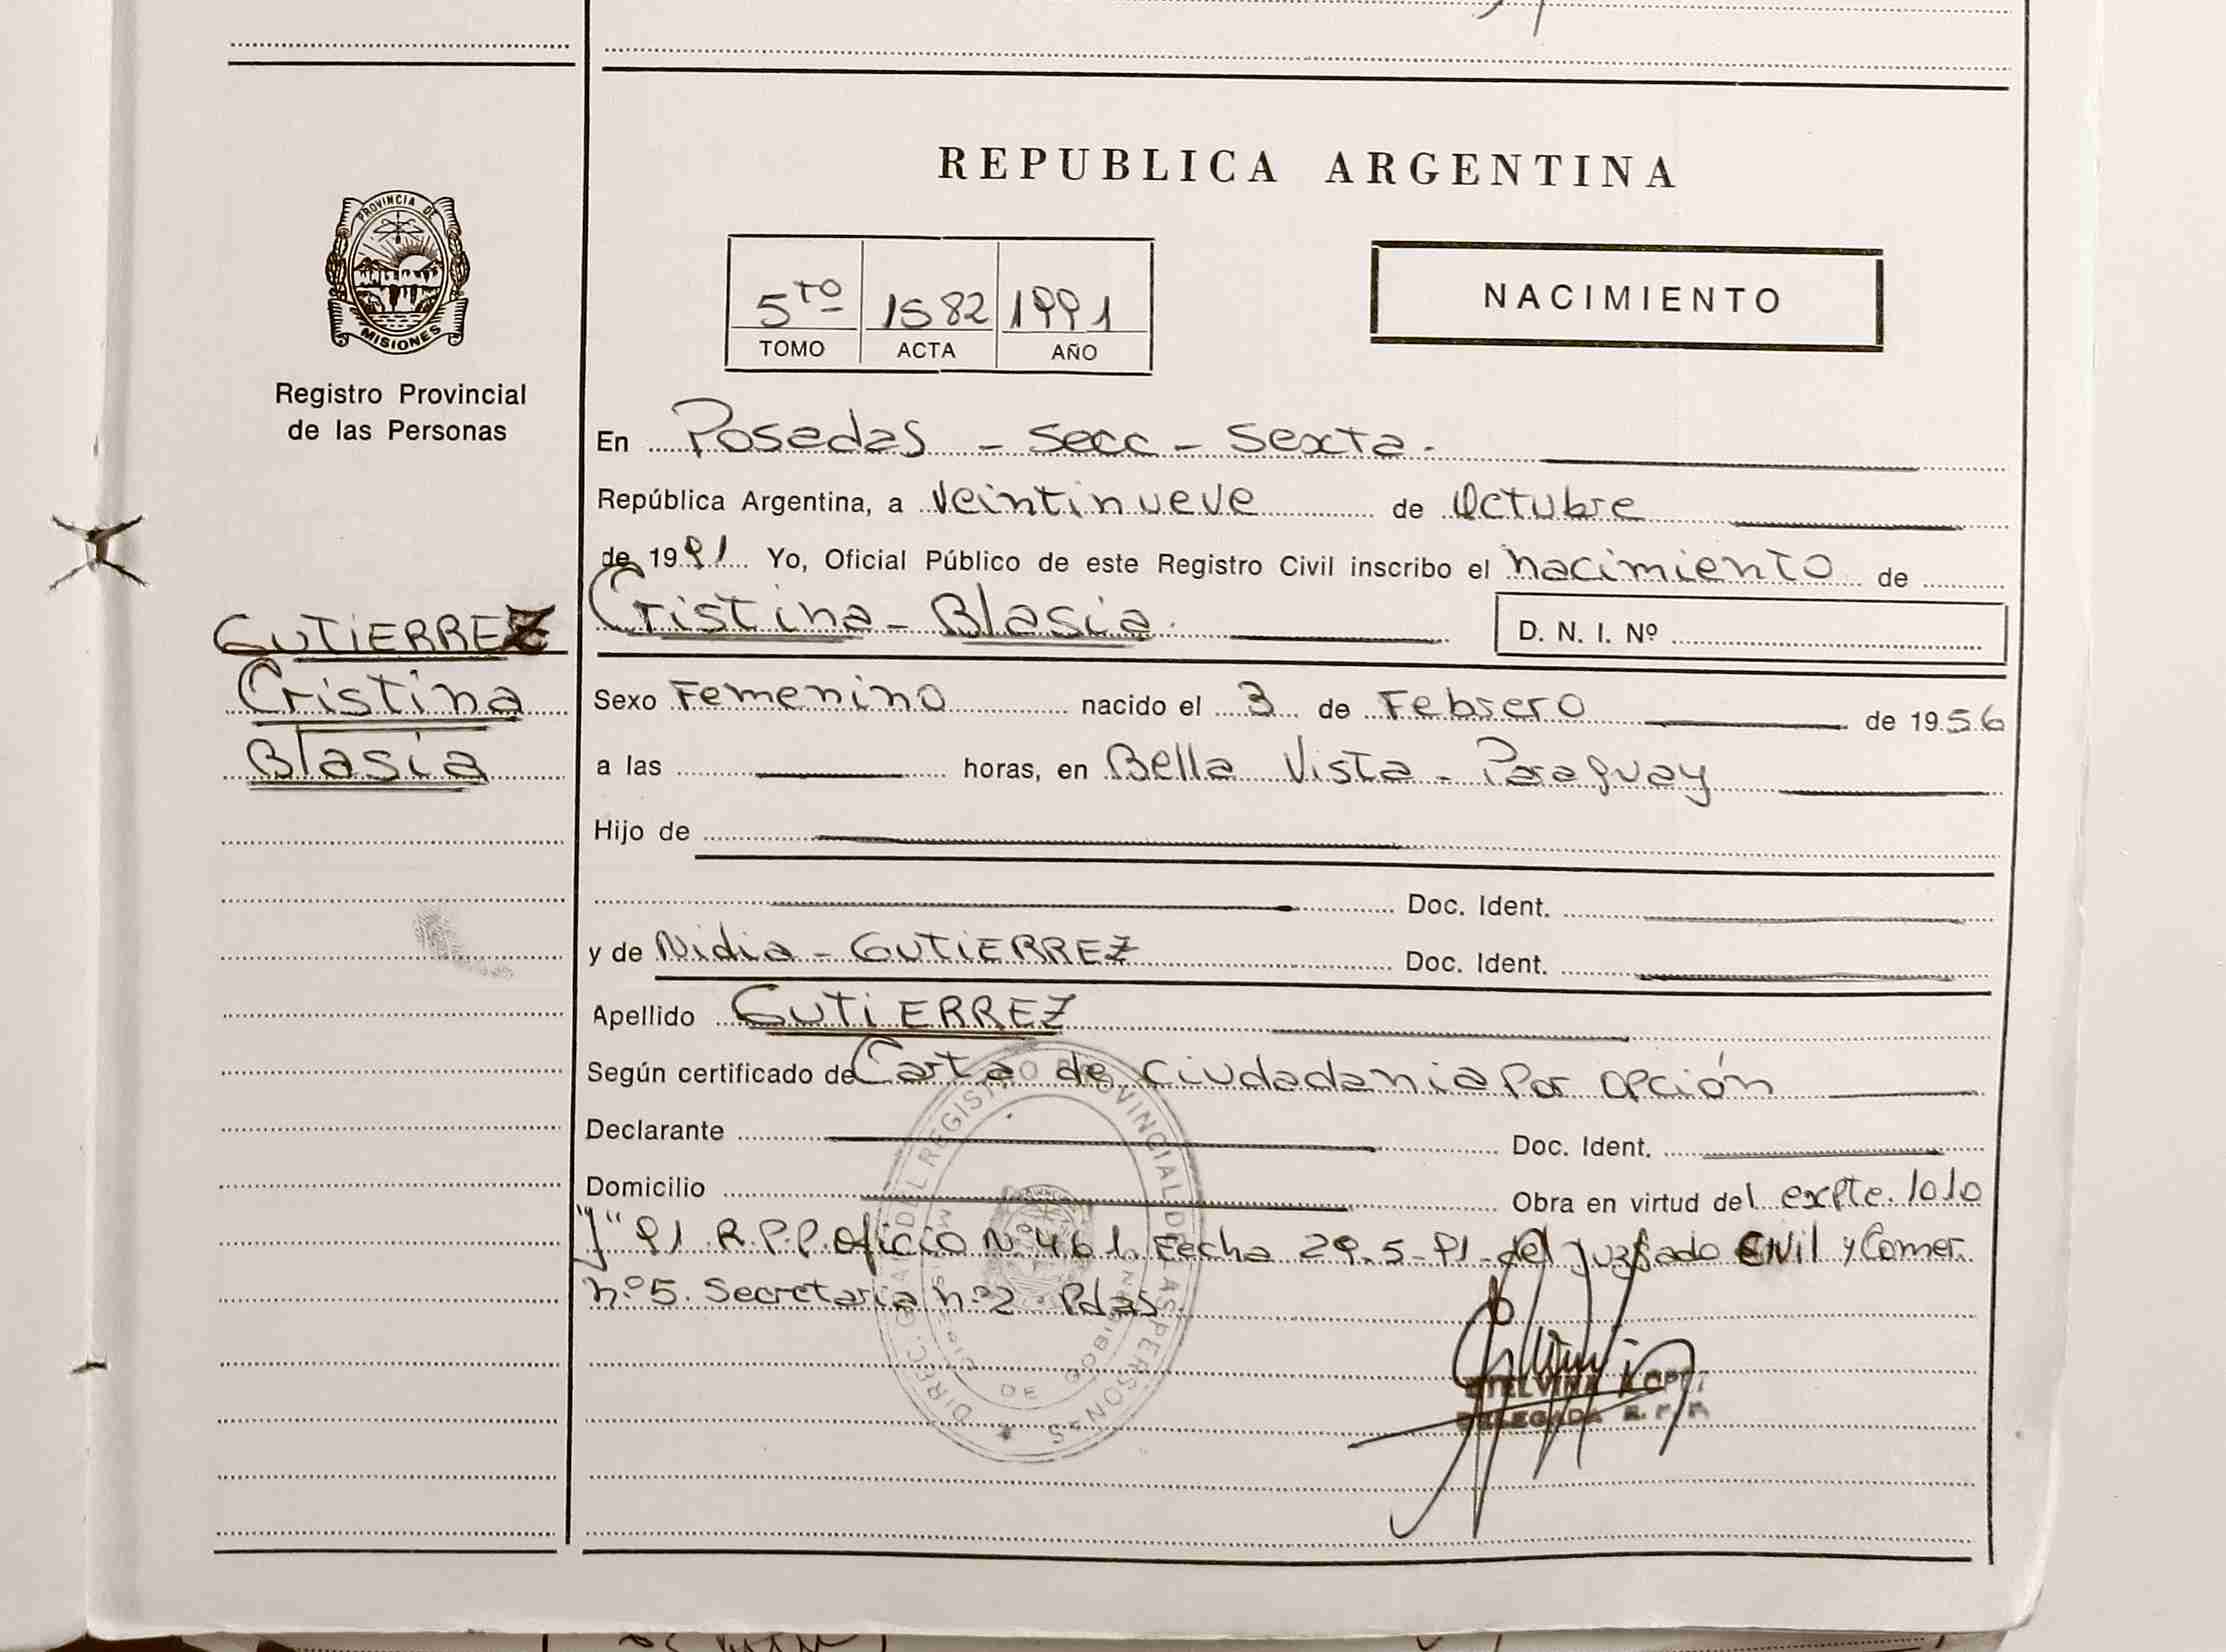 REPUBLICA ARGENTINA
PROVINCIA DE
MISIONES
Registro Provincial
de las Personas
5TO 1582 1991
TOMO ACTA AÑO
NACIMIENTO
En Posadas - Secc - Sexta.
República Argentina, a Veintinueve de Octubre
de 1991 Yo, Oficial Público de este Registro Civil inscribo el nacimiento de
Cristina - Blasia. D. N. I. Nº
GUTIERREZ
Cristina
Blasia
Sexo Femenino nacido el 3 de Febrero de 1956
a las horas, en Bella Vista - Paraguay
Hijo de
Doc. Ident.
y de Nidia - GUTIERREZ Doc. Ident.
Apellido GUTIERREZ
Según certificado de Carta de ciudadania Por opción
Declarante Doc. Ident.
Domicilio Obra en virtud del expte. 1010
"J" 91 R.P.P. Oficio Nº 461. Fecha 29-5-91 - del Juzgado Civil y Comer.
nº5. Secretaria nº2 Pdas.
DIREC. GRAL DEL REGISTRO PROVINCIAL DE LAS PERSONAS
ETELVINA LOPEZ
DELEGADA R. P. P.